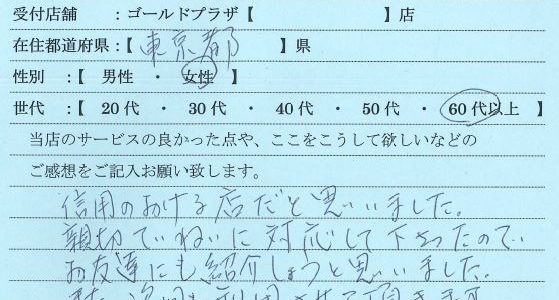 受付店舗 :ゴールドプラザ【 】店
在住都道府県:【 東京都 】県
性別 :【 男性 ・ 女性 】
世代 :【 20代 ・ 30代 ・ 40代 ・ 50代 ・ 60代以上 】
当店のサービスの良かった点や、ここをこうして欲しいなどの
ご感想をご記入お願い致します。
信用のおける店だと思いました。
親切ていねいに対応して下さったので
お友達にも紹介しようと思いました。
また 次回も利用させて頂きます